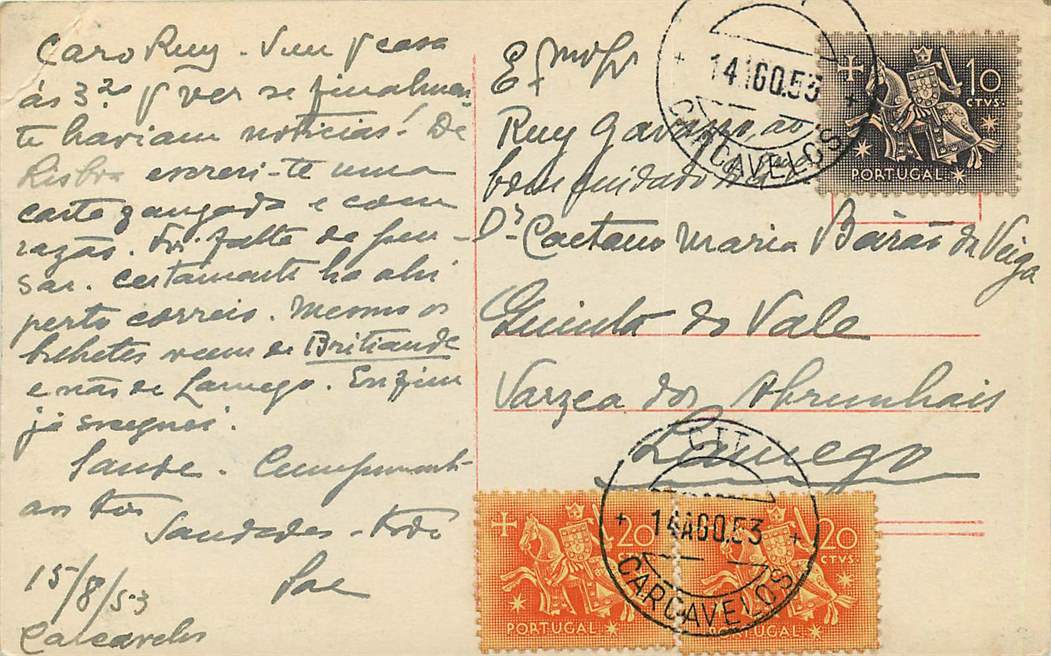 Caro Ruy. Vim p casa
ás 3.as p ver se finalmen-
te haviam noticias! De
Lisboa escrevi-te uma
carta zangada e com
razão. Foi falta de pen-
sar. Certamente ha ahi
perto correio. Mesmo os
bilhetes veem de Britiande
e não de Lamego. Enfim
já soceguei.
Saude. Cumpriment-
aos tios
Saudades -
Pae
15/8/53
Carcavelos
Exmo Sr
Ruy ao
bom cuidado
Dr. Caetano Maria Beirão da Veiga
Quinta do Vale
Varzea dos Abrunhais
Lamego
14 AGO.53
CARCAVELOS
10
CTVS.
PORTUGAL
CTT
14 AGO.53
CARCAVELOS
20
CTVS.
PORTUGAL
20
CTVS.
PORTUGAL